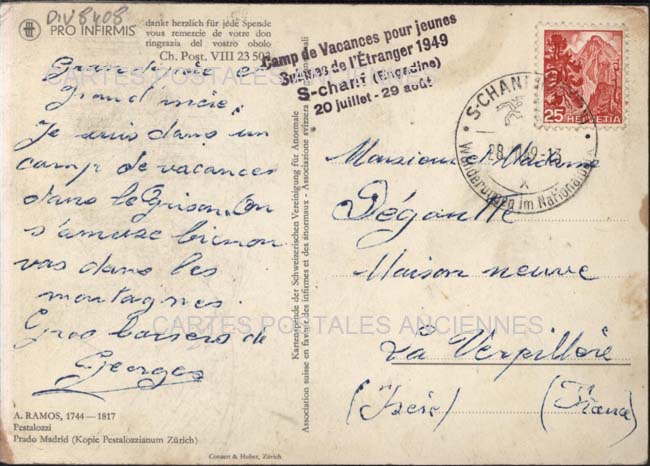 DIV 8408
PRO INFIRMIS
dankt herzlich für jede Spende
vous remercie de votre don
ringrazia del vostro obolo
Ch. Post. VIII 23 503
Camp de Vacances pour jeunes
Suisses de l'Étranger 1949
S-charl (Engadine)
20 juillet - 29 août
25 HELVETIA
S-CHARL
49-13
Wanderungen im Nationalpark
CARTES POSTALES ANCIENNES
Grand'mère
Je suis dans un
camp de vacances
dans le Grison. On
s'amuse bien on
vas dans les
montagnes.
Gros baisers de
Georges
Monsieur Madame
Maison neuve
La Verpillère
(Isère) (France)
CARTES POSTALES ANCIENNES
Kartenspende der Schweizerischen Vereinigung für Anormale
Association suisse en faveur des infirmes et des anormaux - Associazione svizzera
A. RAMOS, 1744—1817
Pestalozzi
Prado Madrid (Kopie Pestalozzianum Zürich)
Conzett & Huber, Zürich